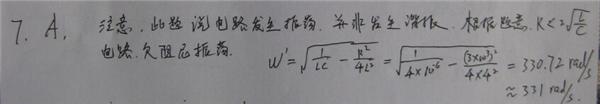 7. A. 注意，此题说电路发生振荡，并非发生谐振，根据题意，R<2√(L/C)
电路欠阻尼振荡. W'=√(1/LC - R²/4L²) = √(1/(4×10⁻⁶) - (3×10³)²/(4×4²)) = 330.72 rad/s
≈ 331 rad/s.